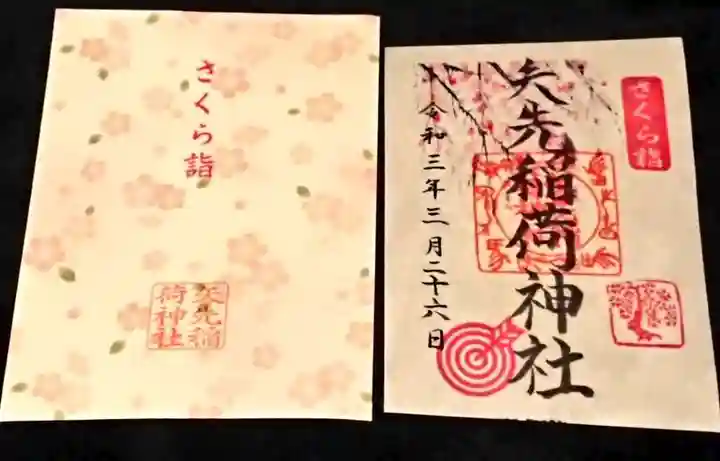 さくら詣
矢先稲
荷神社
さくら詣
矢先稲荷神社
令和三年三月二十六日